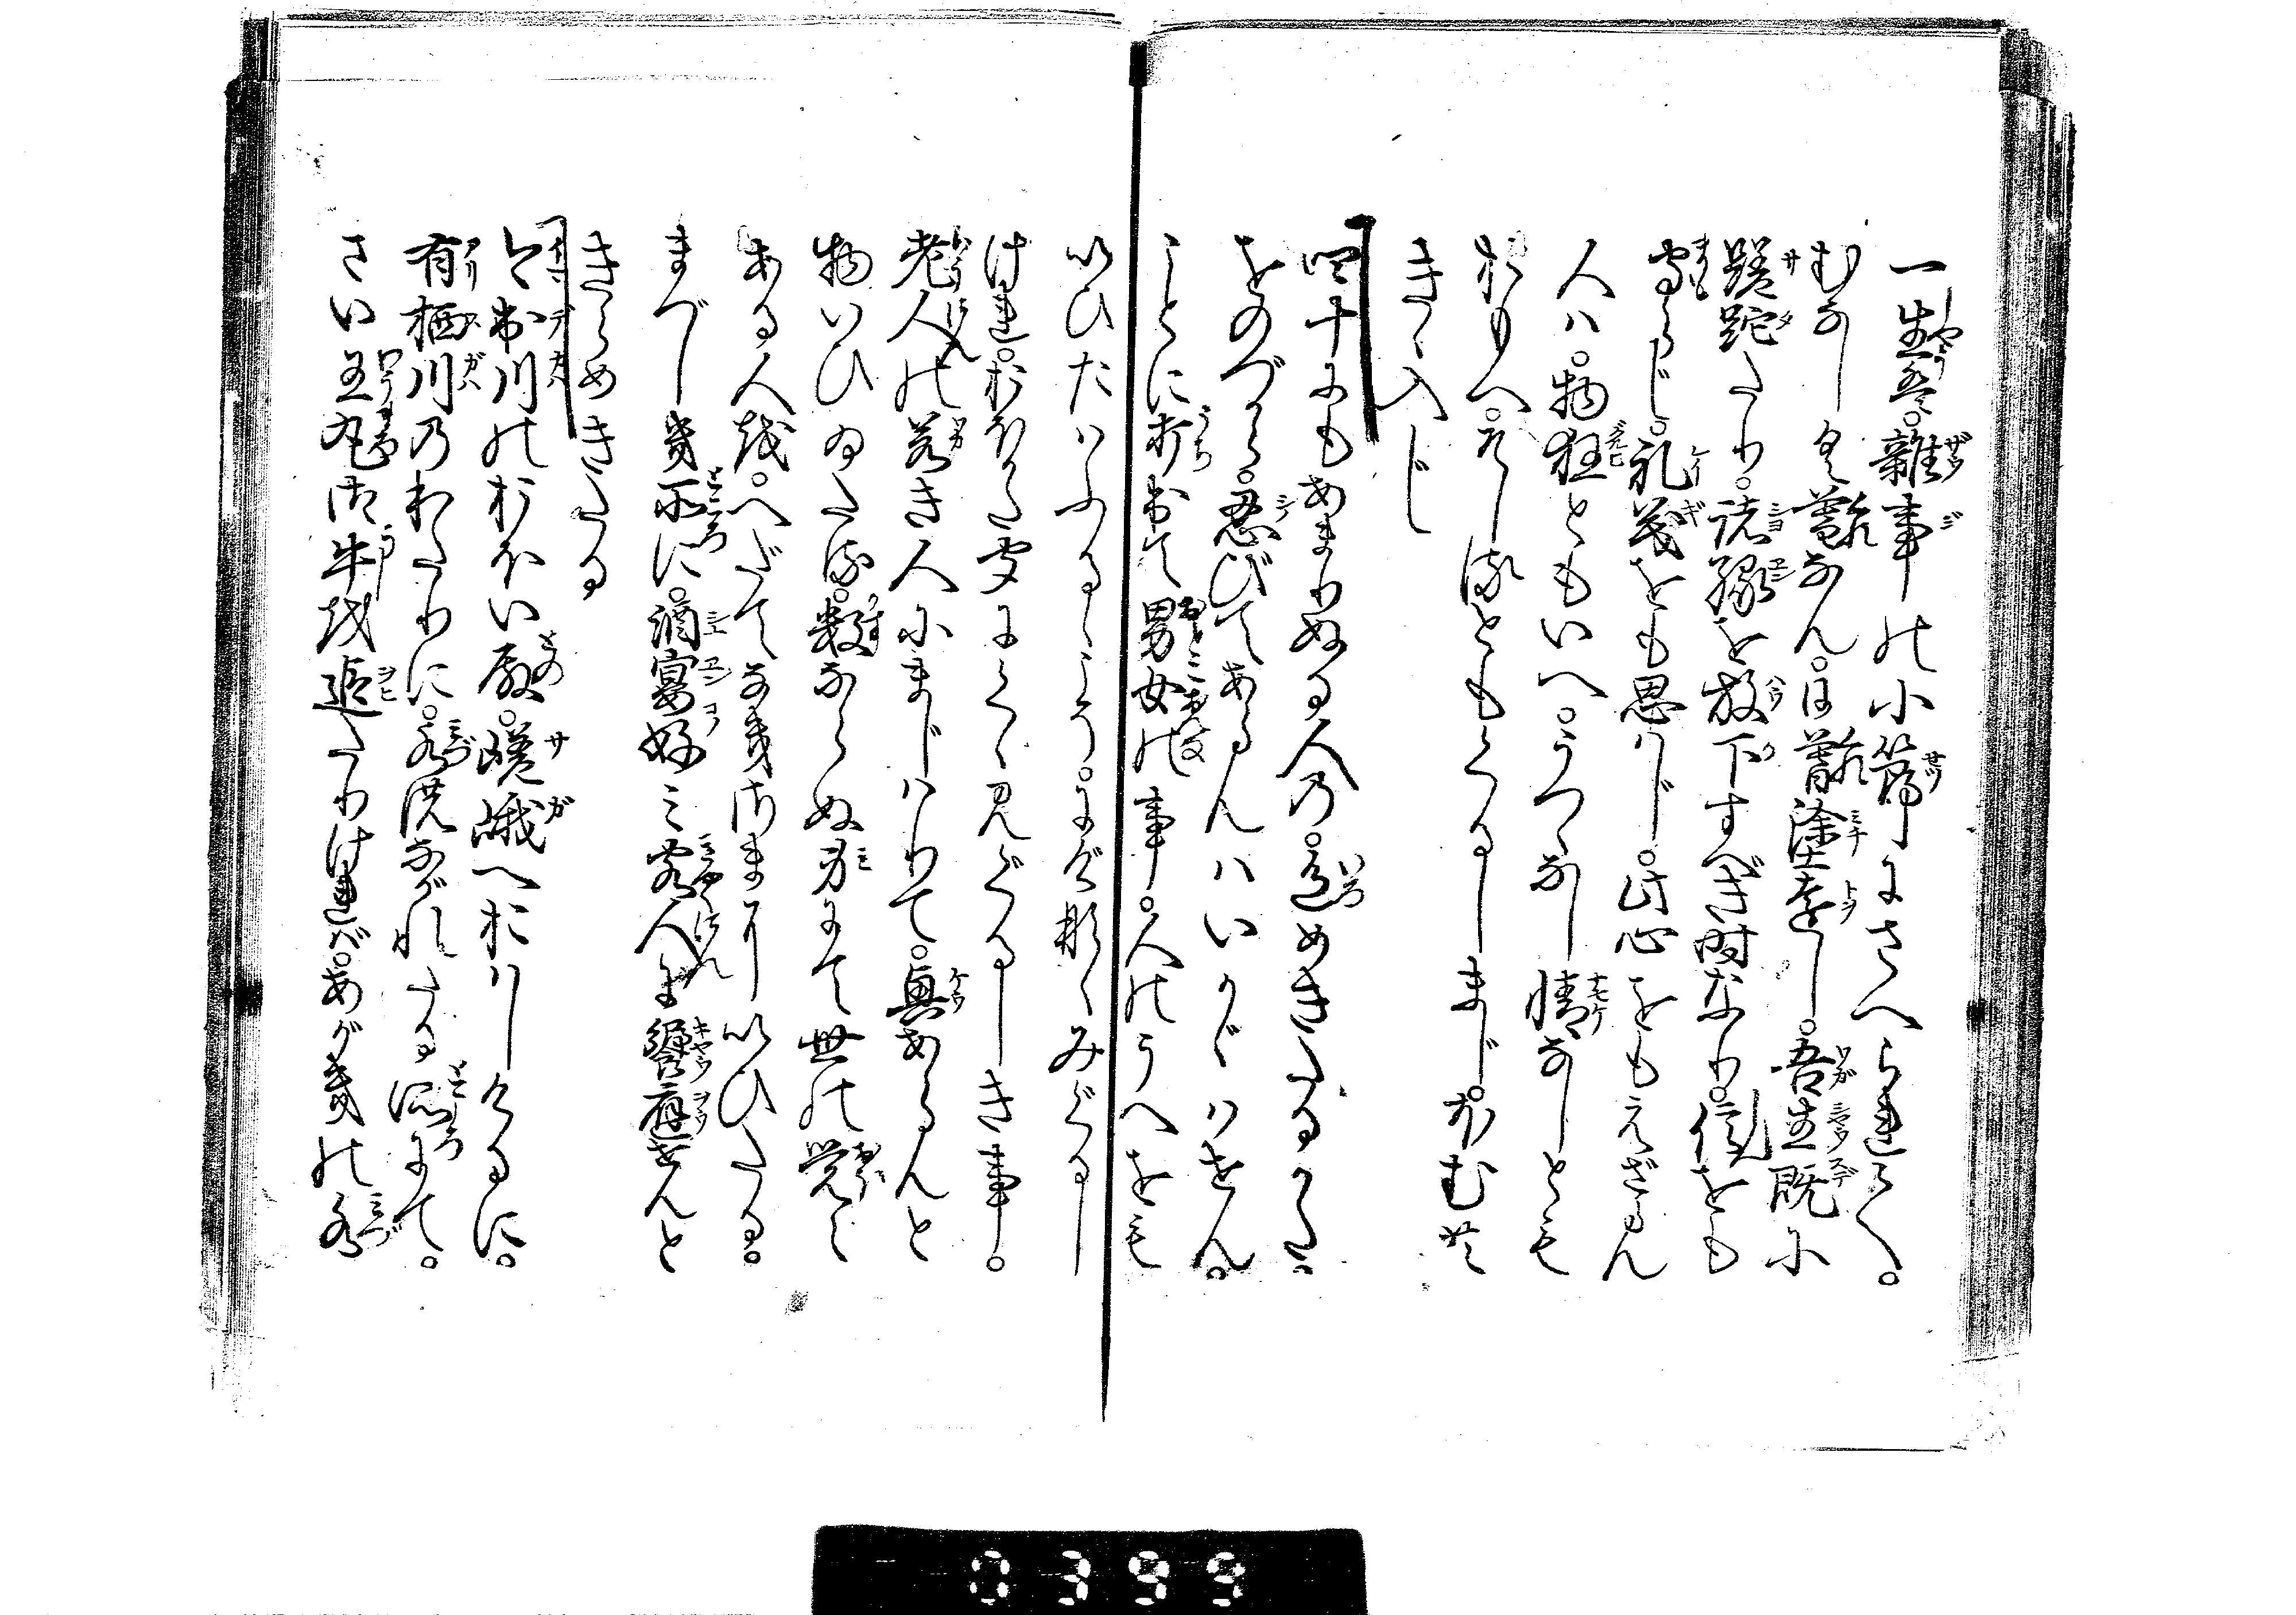 一生は。雑事の小節にさへられて。
むなしく暮なん。日暮塗遠し。吾生既に
蹉跎たり。諸縁を放下すべき時なり。信をも
守らじ。礼義をも思はじ。此心をもえざらん
人は。物狂ともいへ。うつゝなし情なしとも
おもへ。そしるともくるしまじ。ほむ共
きゝ入じ
四十にもあまりぬる人の。色めきたるかたは
をのづから。忍びてあらんはいかゞはせん。
ことに打出て男女の事。人のうへをも
いひたはふるゝこそ。にげなくみぐるし
けれ。おほかた聞にくゝ見ぐるしき事。
老人の若き人にまじはりて。興あらんと
物いひゐたる。数ならぬ身にて世の覚え
ある人を。へだてなきさまにいひたる。
まづしき所に。酒宴好み客人に饗応せんと
きらめきたる
今出川のおほい殿。嵯峨へおはしけるに。
有栖川のわたりに。水洪ながれたる所にて。
さい王丸御牛を追たりければ。あがきの水